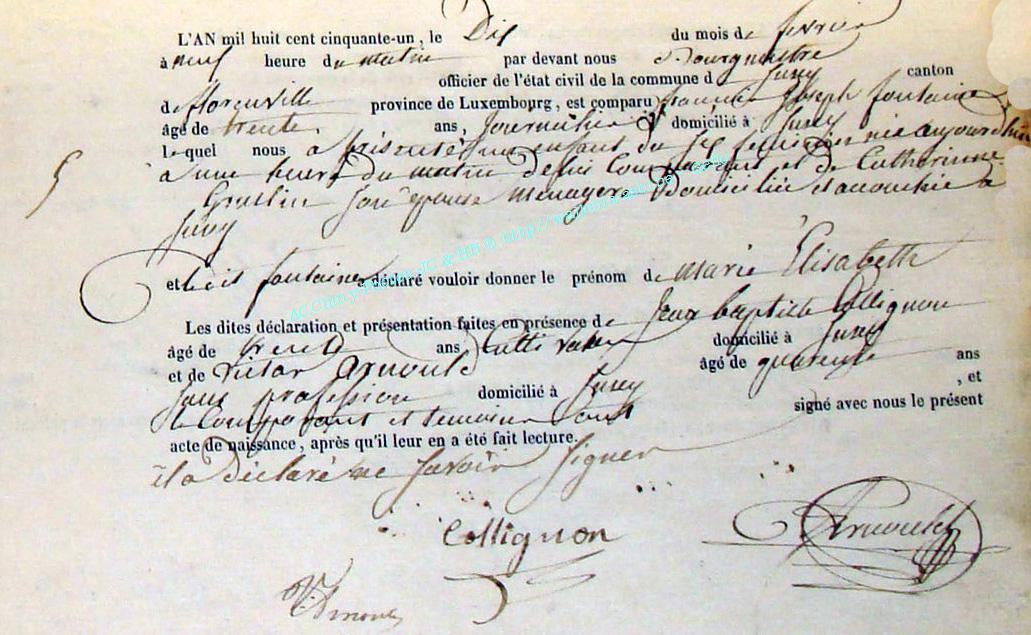 L'AN mil huit cent cinquante-un, le Dix du mois de fevrier
à neuf heure du matin par devant nous Bourgmestre
officier de l'état civil de la commune d Jzey canton
de florenville province de Luxembourg, est comparu francois Joseph fontaine
âgé de trente ans, Journalier domicilié à
lequel nous a présenté un enfant du sexe feminin née aujourdhui
à une heure du matin de lui Comparant et de Catherine
son épouse menagere Domiciliée et accouchée a
et le dit fontaine a déclaré vouloir donner le prénom de Marie Élisabeth
Les dites déclaration et présentation faites en présence de Jean baptiste Collignon
âgé de trente ans Cultivateur domicilié à
et de Victor Arnould âgé de quarente ans
sans profession domicilié à , et
le Comparant et temoins ont signé avec nous le présent
acte de naissance, après qu'il leur en a été fait lecture.
il a Déclaré ne savoir signer
Collignon
Arnould
V. Arnould
5